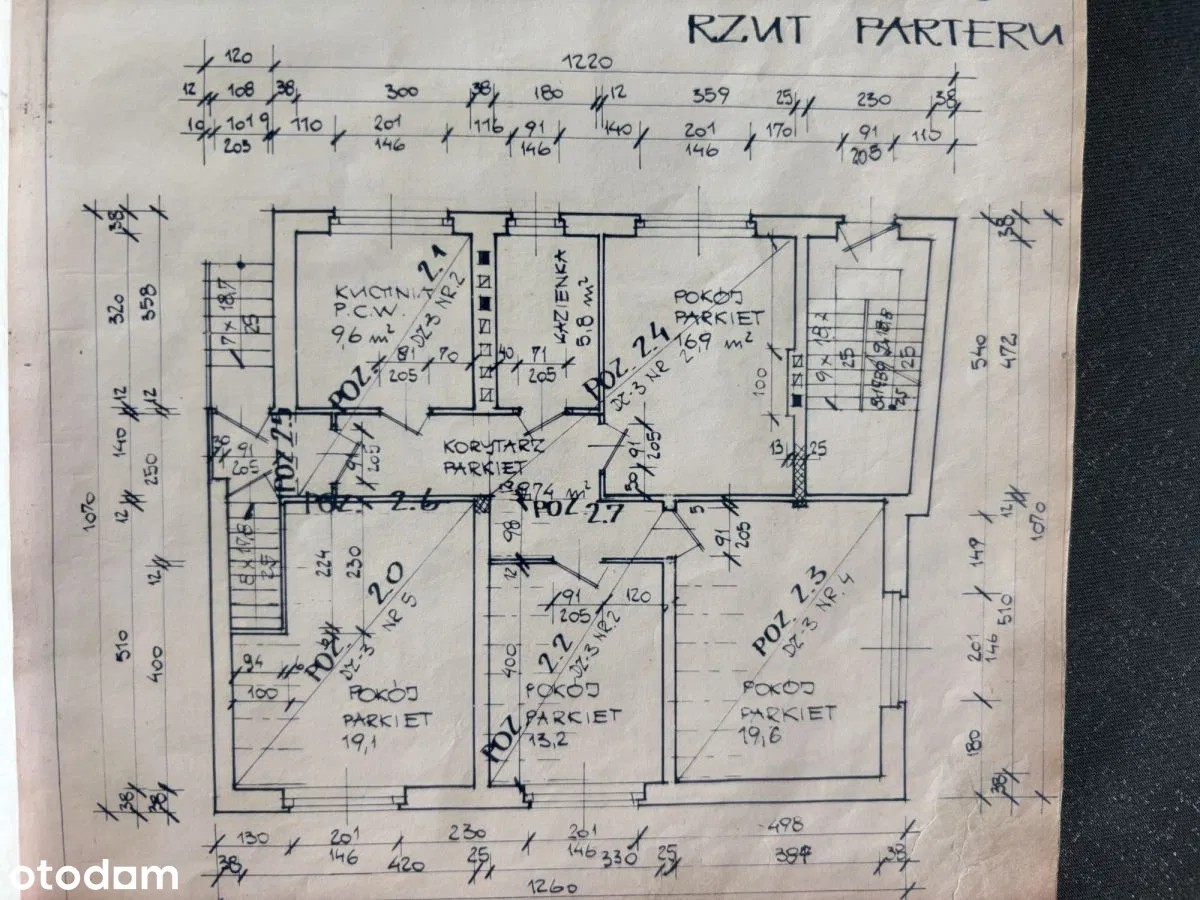 RZUT PARTERU
120
1220
12 108 38 300 38 180 12 359 25 230 38
10 101 9 110 201 116 91 140 201 170 91 110
205 146 146 146 205
38
320
358
12
12
140
250
12
1070
12
510
400
38
38
38
540
472
12
1070
149
510
201
146
180
38
7 x 18,7
25
KUCHNIA
P.C.W.
9,6 m²
POZ. 2.1
DZ-3 NR.2
81
205
70
ŁAZIENKA
5,8 m²
40
71
205
POKÓJ
PARKIET
16,9 m²
POZ 2.4
DZ-3 NR
100
9 x 18,2
25
25
25
13
25
91
205
POZ 2.5
91
205
KORYTARZ
PARKIET
91
205
50
POZ. 2.6
POZ 2.7
98
12
5
91
205
25
224
230
POZ. 2.0
DZ-3 NR 5
94
6
100
POKÓJ
PARKIET
19,1
91
205
120
400
POZ 2.2
DZ-3 NR.2
POKÓJ
PARKIET
13,2
POZ 2.3
DZ-3 NR.4
POKÓJ
PARKIET
19,6
130 201 230 201 498
146 146
38 420 25 330 25 384 38
1260
otodom